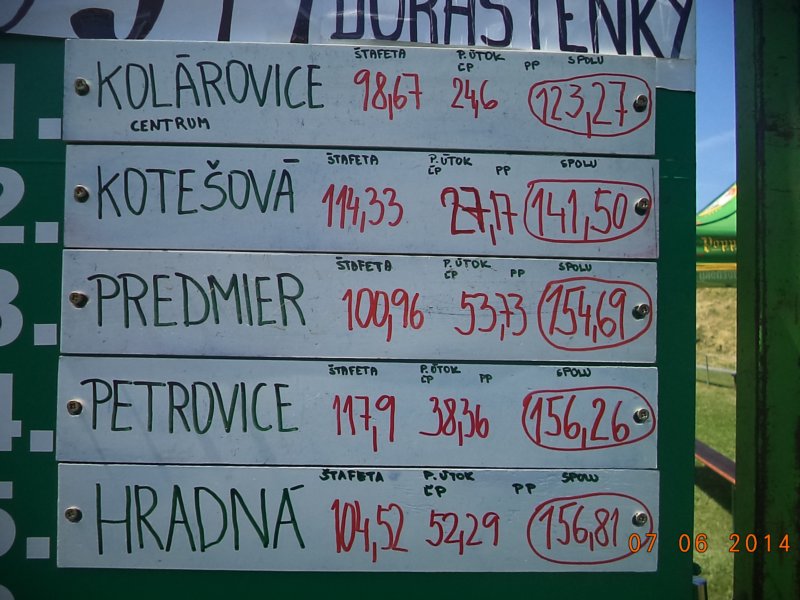 DORASTENKY
1.
ŠTAFETA P. ÚTOK SPOLU
ČP PP
KOLÁROVICE 98,67 24,6 123,27
CENTRUM
2.
ŠTAFETA P. ÚTOK SPOLU
ČP PP
KOTEŠOVÁ 114,33 27,17 141,50
3.
ŠTAFETA P. ÚTOK SPOLU
ČP PP
PREDMIER 100,96 53,73 154,69
4.
ŠTAFETA P. ÚTOK SPOLU
ČP PP
PETROVICE 117,9 38,36 156,26
5.
ŠTAFETA P. ÚTOK SPOLU
ČP PP
HRADNÁ 104,52 52,29 156,81
07 06 2014